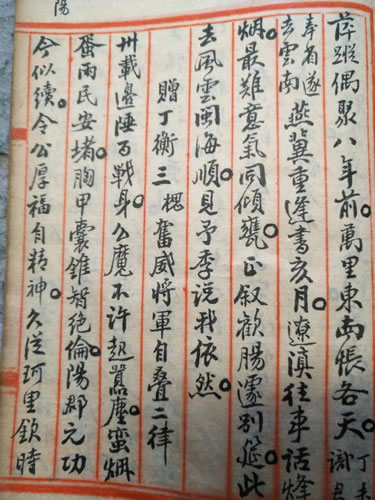 陽
萍蹤偶聚八年前。萬里東西悵各天。丁
奉省遂
去雲南
燕冀重逢書亥月。遼滇往事話烽
烟。最難意氣同傾甕。正叙歡腸遽別筵。此
去風雲閩海順。見予季說我依然。
贈丁衡三槐奮威將軍自叠二律
卅載邊陲百戰身。公魔不許起囂塵。蠻烟
蜑雨民安堵。胸甲囊錐智絕倫。陽郡元功
今似續。令公厚福自精神。久從珂里欽時